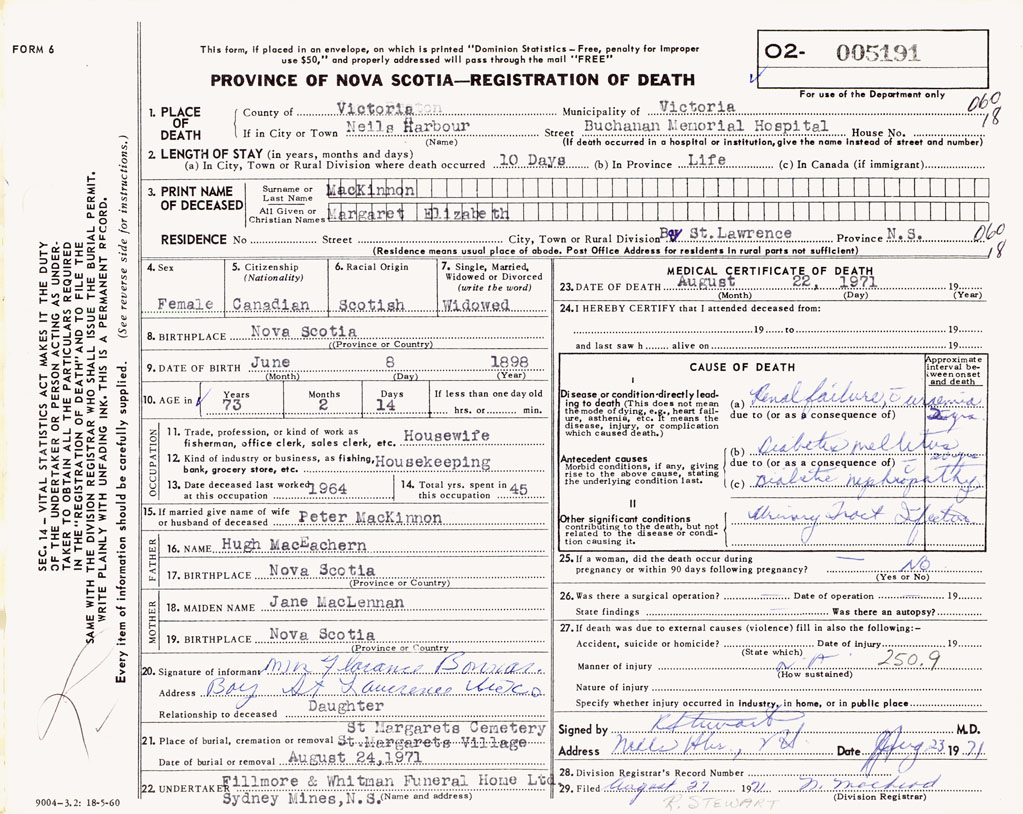 FORM 6
This form, if placed in an envelope, on which is printed "Dominion Statistics – Free, penalty for improper
use $50," and properly addressed will pass through the mail "FREE"
PROVINCE OF NOVA SCOTIA—REGISTRATION OF DEATH
O2- 005191
For use of the Department only
060
18
1. PLACE OF DEATH
County of Victoria Municipality of Victoria
If in City or Town Neils Harbour Street Buchanan Memorial Hospital House No.
(Name) (If death occurred in a hospital or institution, give the name instead of street and number)
2. LENGTH OF STAY (in years, months and days)
(a) In City, Town or Rural Division where death occurred 10 Days (b) In Province Life (c) In Canada (if immigrant)
3. PRINT NAME OF DECEASED
Surname or Last Name MacKinnon
All Given or Christian Names Margaret Elizabeth
RESIDENCE No Street City, Town or Rural Division Bay St. Lawrence Province N.S. 060
18
(Residence means usual place of abode. Post Office Address for residents in rural parts not sufficient)
4. Sex Female
5. Citizenship (Nationality) Canadian
6. Racial Origin Scotish
7. Single, Married, Widowed or Divorced (write the word) Widowed
8. BIRTHPLACE Nova Scotia
(Province or Country)
9. DATE OF BIRTH June 8 1898
(Month) (Day) (Year)
10. AGE in Years 73 Months 2 Days 14 If less than one day old hrs. or min.
OCCUPATION
11. Trade, profession, or kind of work as fisherman, office clerk, sales clerk, etc. Housewife
12. Kind of industry or business, as fishing, bank, grocery store, etc. Housekeeping
13. Date deceased last worked at this occupation 1964
14. Total yrs. spent in this occupation 45
15. If married give name of wife or husband of deceased Peter MacKinnon
FATHER
16. NAME Hugh MacEachern
17. BIRTHPLACE Nova Scotia
(Province or Country)
MOTHER
18. MAIDEN NAME Jane MacLennan
19. BIRTHPLACE Nova Scotia
(Province or Country)
20. Signature of informant Mrs Florance
Address Bay St Lawrence Vic Co
Relationship to deceased Daughter
St Margarets Cemetery
21. Place of burial, cremation or removal St. Margarets Village
Date of burial or removal August 24, 1971
22. UNDERTAKER Fillmore & Whitman Funeral Home Ltd.
Sydney Mines, N.S. (Name and address)
MEDICAL CERTIFICATE OF DEATH
23. DATE OF DEATH August 22, 1971 19
(Month) (Day) (Year)
24. I HEREBY CERTIFY that I attended deceased from:
19 to 19
and last saw h alive on 19
CAUSE OF DEATH
Approximate interval between onset and death
I
Disease or condition directly leading to death (This does not mean the mode of dying, e.g., heart failure, asthenia, etc. It means the disease, injury, or complication which caused death.)
(a) Renal failure, c uraemia
due to (or as a consequence of)
Antecedent causes
Morbid conditions, if any, giving rise to the above cause, stating the underlying condition last.
(b) Diabetes mellitus
due to (or as a consequence of) c
(c) Diabetic nephropathy
II
Other significant conditions contributing to the death, but not related to the disease or condition causing it.
Urinary Tract Infection
25. If a woman, did the death occur during
pregnancy or within 90 days following pregnancy? — NO
(Yes or No)
26. Was there a surgical operation? — Date of operation — 19
State findings — Was there an autopsy? —
27. If death was due to external causes (violence) fill in also the following:—
Accident, suicide or homicide? Date of injury 19
(State which) 250.9
Manner of injury
(How sustained)
Nature of injury
Specify whether injury occurred in industry, in home, or in public place
Signed by R Stewart M.D.
Address Neils Hbr., NS Date Aug 23 1971
28. Division Registrar's Record Number
29. Filed August 27 1971
(Division Registrar)
R. STEWART
SEC. 14 – VITAL STATISTICS ACT MAKES IT THE DUTY
OF THE UNDERTAKER OR PERSON ACTING AS UNDER-
TAKER TO OBTAIN ALL THE PARTICULARS REQUIRED
IN THE "REGISTRATION OF DEATH" AND TO FILE THE
SAME WITH THE DIVISION REGISTRAR WHO SHALL ISSUE THE BURIAL PERMIT.
WRITE PLAINLY WITH UNFADING INK. THIS IS A PERMANENT RECORD.
Every item of information should be carefully supplied. (See reverse side for instructions.)
9004–3.2: 18-5-60